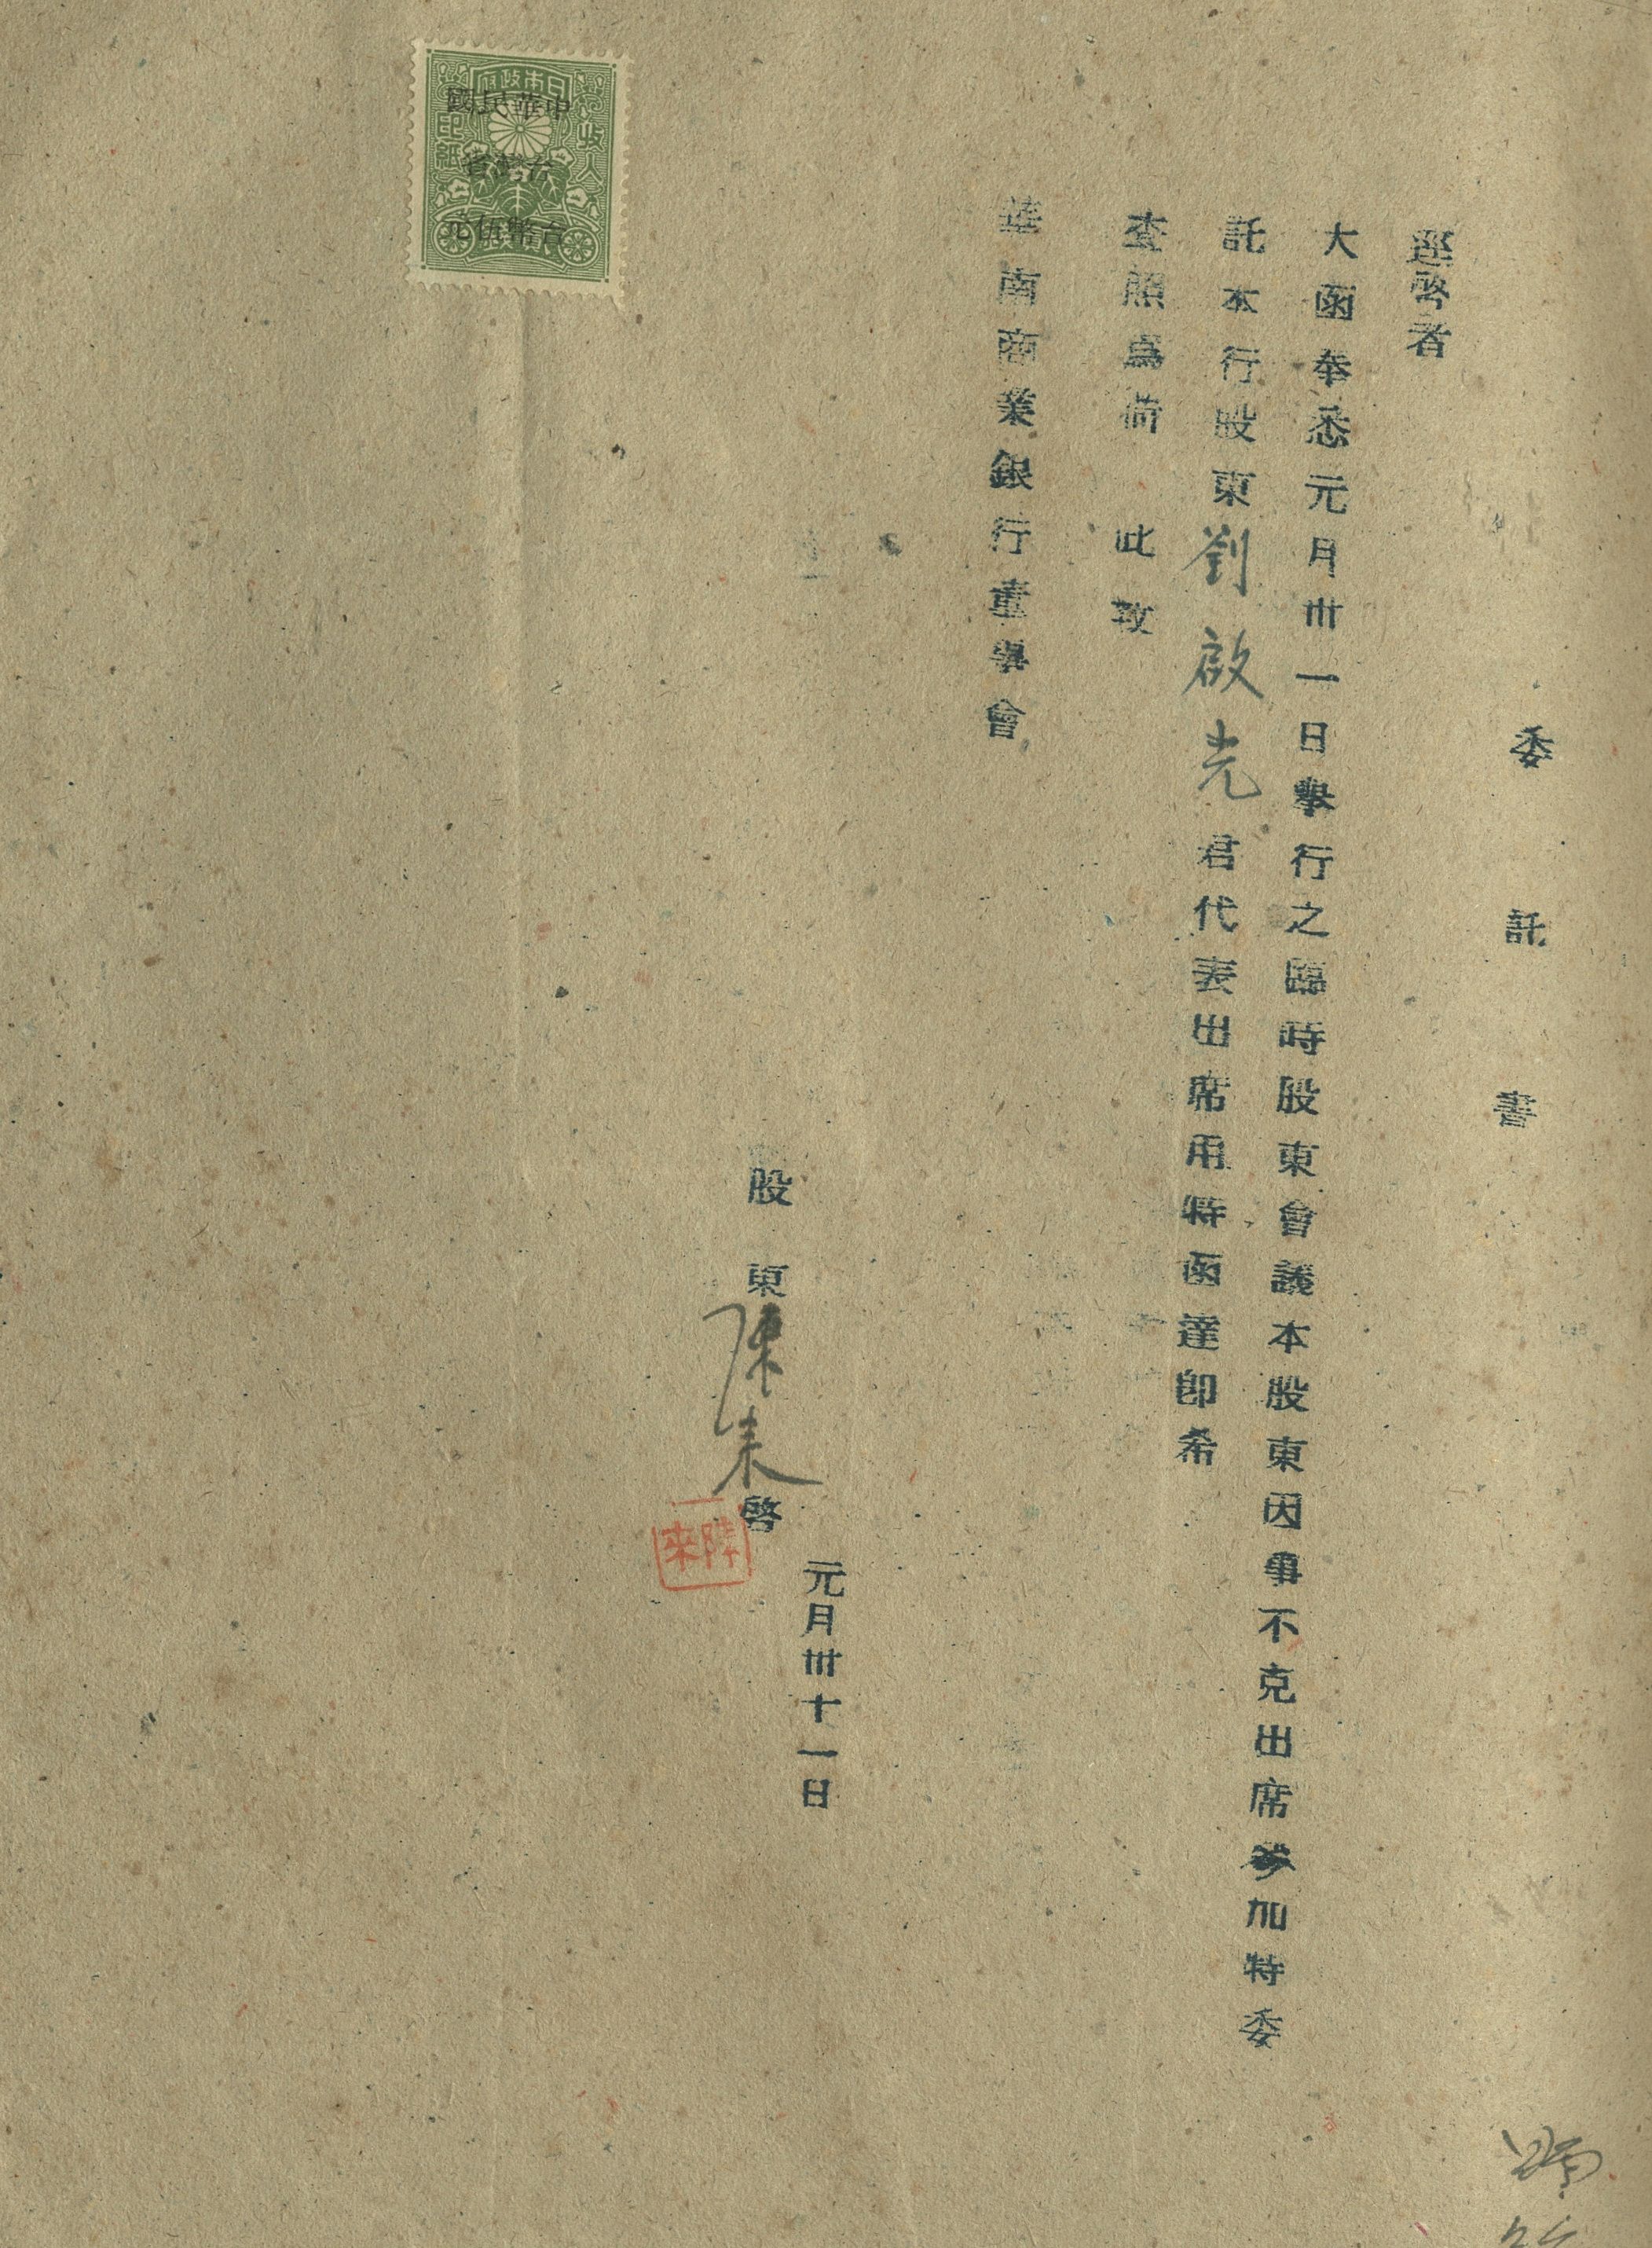 委託書
逕啓者
大函奉悉元月卅一日擧行之臨時股東會議本股東因事不克出席參加特委
託本行股東劉啟光君代表出席用特函達卽希
查照爲荷 此致
華南商業銀行董事會
元月卅十一日
股東陳來啓
陳來
日本政府
收入印紙
中華民國
台灣省
台幣伍元